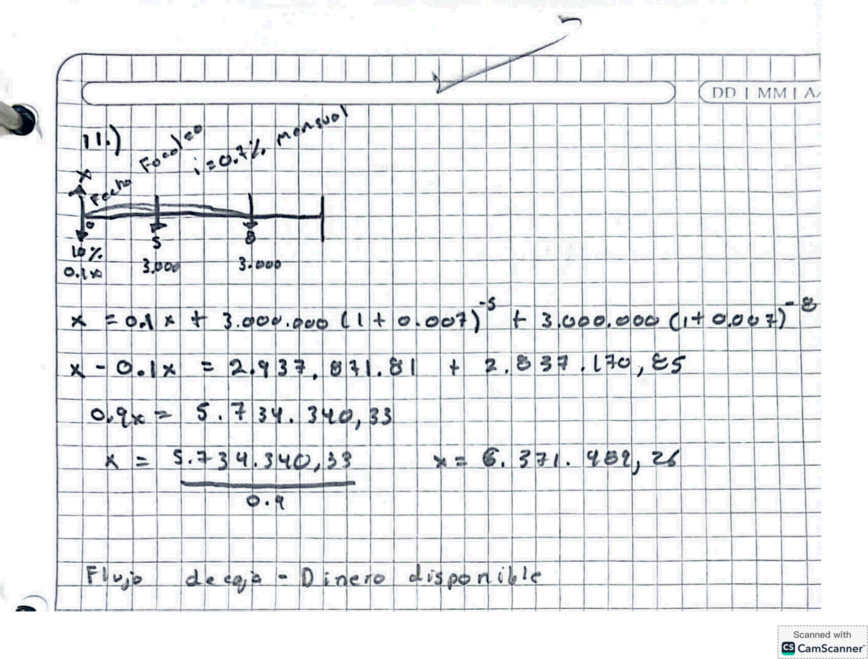 DD | MM | A
11.)
Fecha Focal=0
i=0.7% mensual
x
0 5 8
10%
0.1x 3.000 3.000
x = 0.1x + 3.000.000 (1 + 0.007)^-5 + 3.000.000 (1+0.007)^-8
x - 0.1x = 2.937.871.81 + 2.837.170,85
0.9x = 5.734.340,33
x = 5.734.340,33 x = 6.371.489,26
0.9
Flujo de caja - Dinero disponible
Scanned with
CS CamScanner